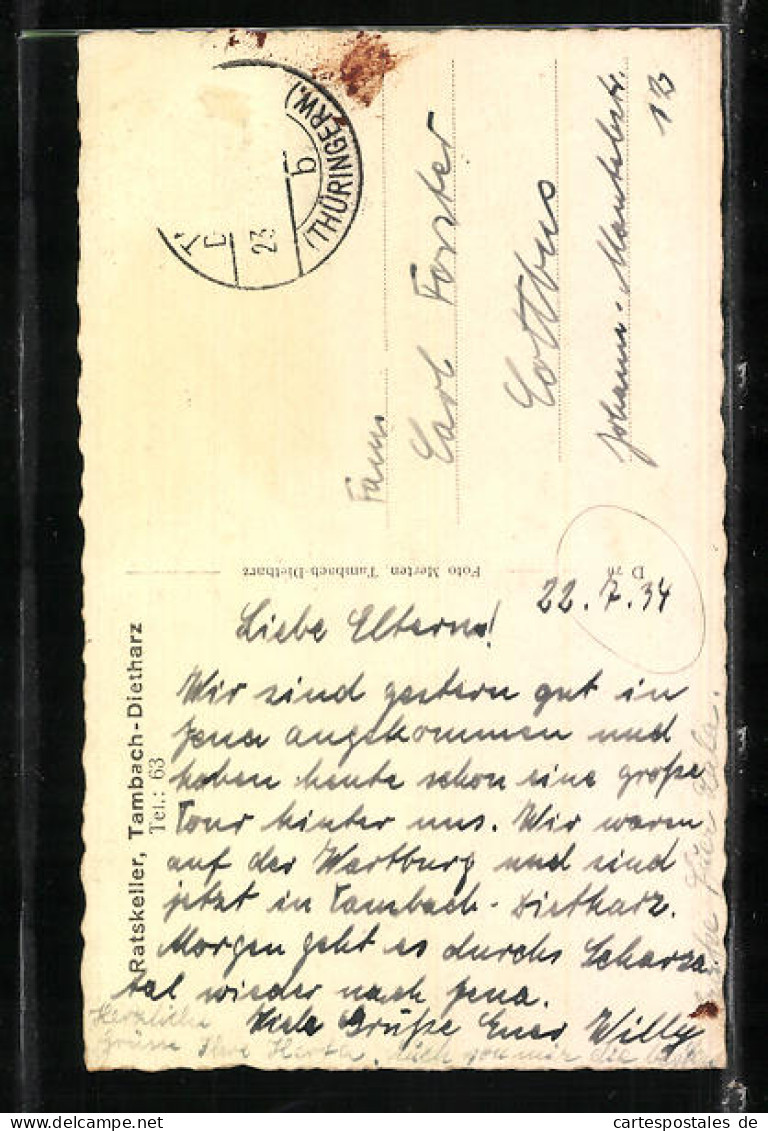 (THÜRINGERW.)
b
23
Fam
Carl Forster
Cottbus
Johann-Mantelstr.
13
D 76
Foto Merten, Tambach-Dietharz
Ratskeller, Tambach-Dietharz
Tel.: 63
22.7.34
Liebe Eltern!
Wir sind gestern gut in
Jena angekommen und
haben heute schon eine große
Tour hinter uns. Wir waren
auf der Wartburg und sind
jetzt in Tambach-Dietharz.
Morgen geht es durchs Schwarza
tal wieder nach Jena.
Viele Grüße Euer Willy
Herzliche
Grüße Ihre Herta. Auch von mir die besten
Grüße Euer
cartespostales de